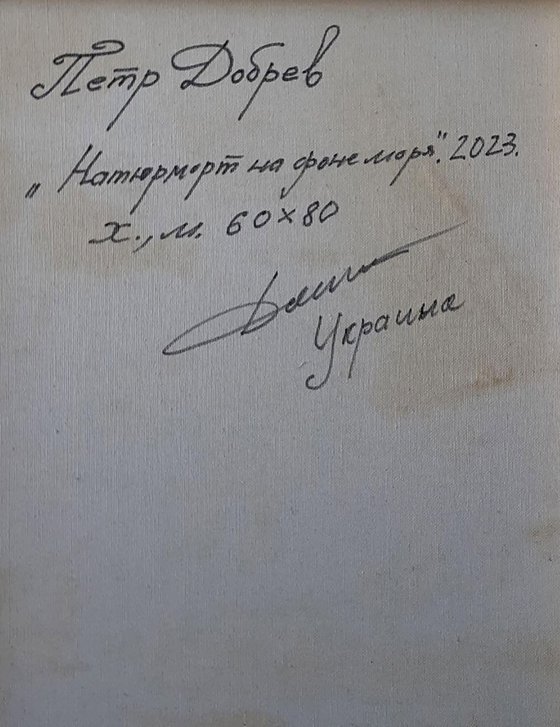 Петр Добрев
„Натюрморт на фоне моря". 2023.
х., м. 60×80
Украина